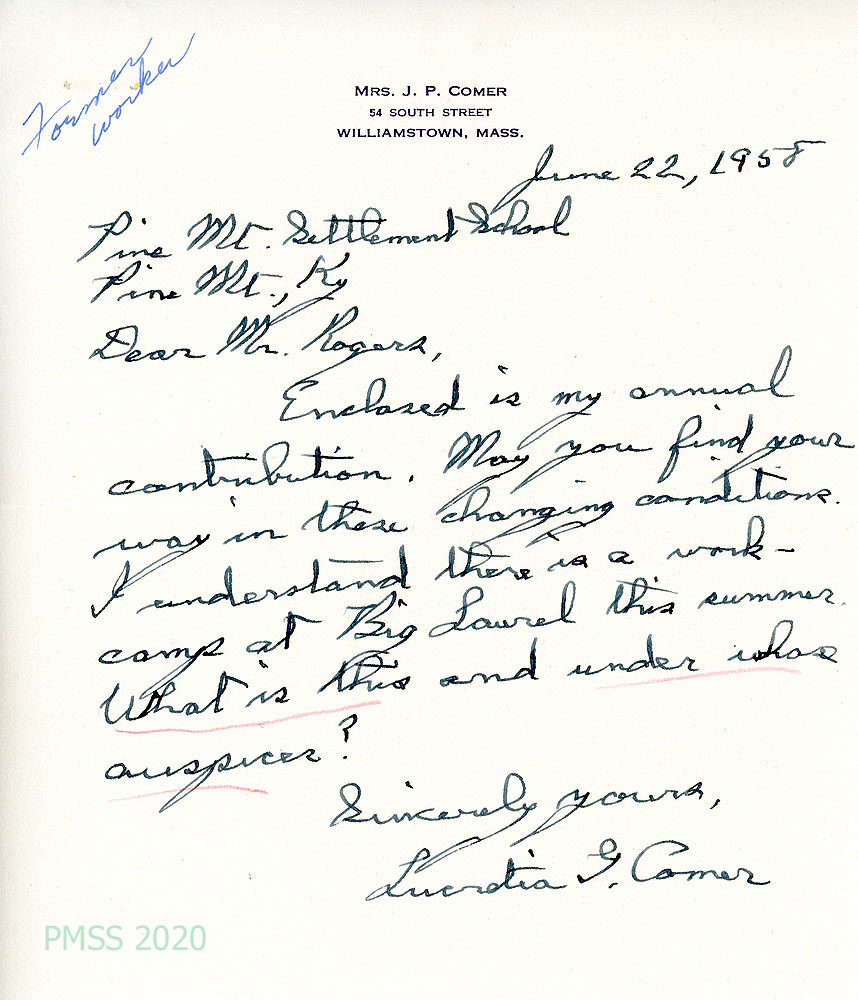 Former
worker
MRS. J. P. COMER
54 SOUTH STREET
WILLIAMSTOWN, MASS.
June 22, 1958
Pine Mt. Settlement School
Pine Mt., Ky
Dear Mr. Rogers,
Enclosed is my annual
contribution. May you find your
way in these changing conditions.
I understand there is a work-
camp at Big Laurel this summer.
What is this and under whose
auspices?
Sincerely yours,
Lucretia G. Comer
PMSS 2020